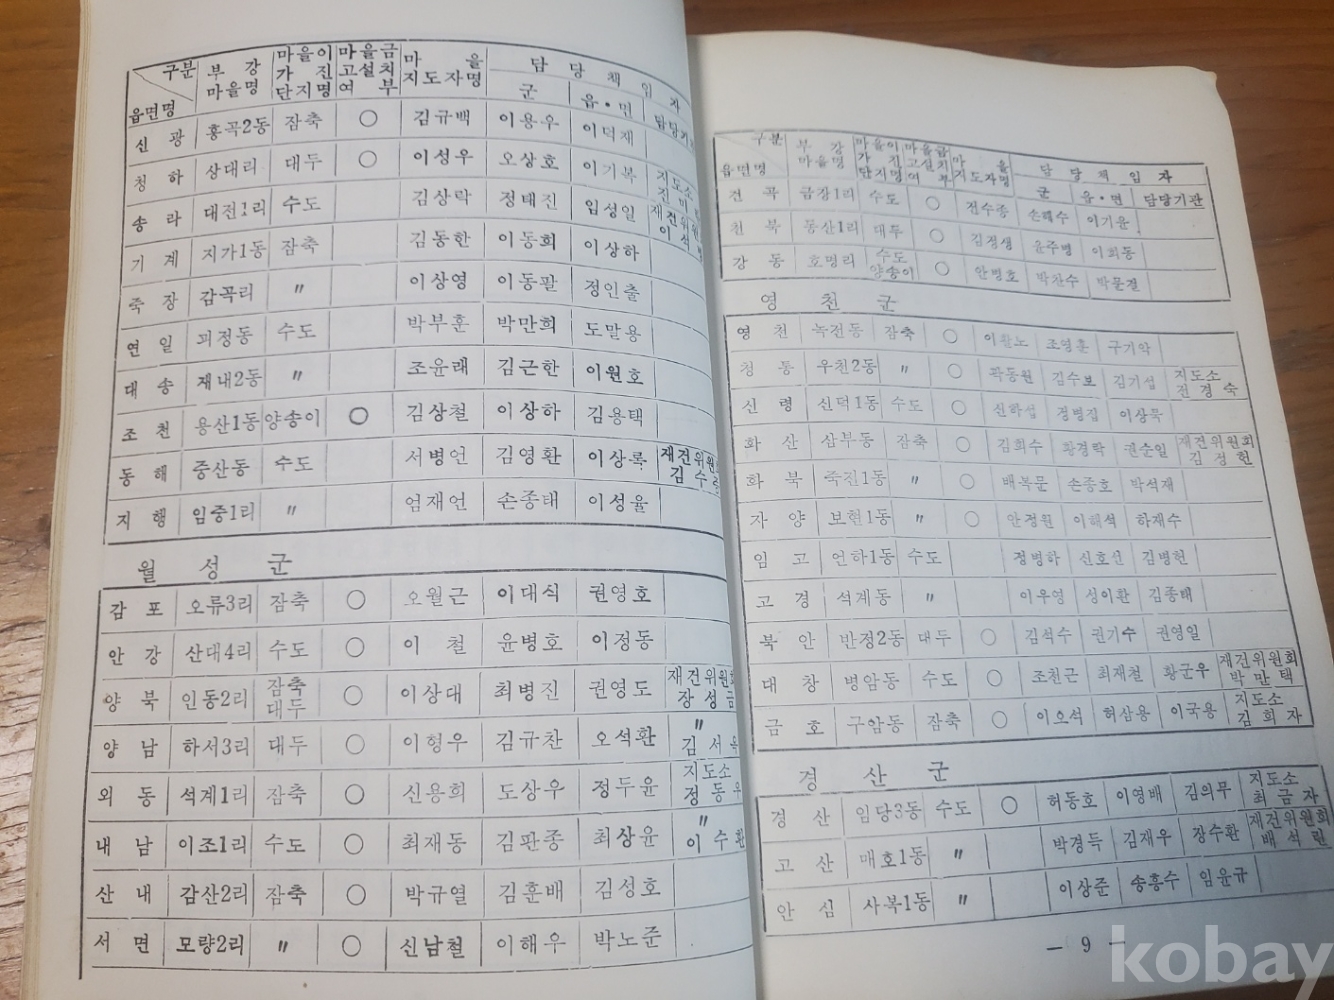 구분 부강 마을명 마을이 가진 단지명 마을금고설치여부 마을 지도자명 담당책임자
읍면명 군 읍·면 담당기
신광 홍곡2동 잠축 ○ 김규백 이용우 이덕재
청하 상대리 대두 ○ 이성우 오상호 이기복 지도소
송라 대전1리 수도 김상락 정태진 임성일 재건위원 이석
기계 지가1동 잠축 김동한 이동희 이상하
죽장 감곡리 〃 이상영 이동팔 정인출
연일 괴정동 수도 박부훈 박만희 도말용
대송 재내2동 〃 조윤래 김근한 이원호
조천 용산1동 양송이 ○ 김상철 이상하 김용택
동해 중산동 수도 서병언 김영환 이상록 재건위원 김수
지행 임중1리 〃 엄재언 손종태 이성율
월성군
감포 오류3리 잠축 ○ 오월근 이대식 권영호
안강 산대4리 수도 ○ 이철 윤병호 이정동
양북 인동2리 잠축 대두 ○ 이상대 최병진 권영도 재건위원회 장성금
양남 하서3리 대두 ○ 이형우 김규찬 오석환 〃 김서옥
외동 석계1리 잠축 ○ 신용희 도상우 정두윤 지도소 정동우
내남 이조1리 수도 ○ 최재동 김판종 최상윤 〃 이수환
산내 감산2리 잠축 ○ 박규열 김훈배 김성호
서면 모량2리 〃 ○ 신남철 이해우 박노준
구분 부강 마을명 마을이 가진 단지명 마을금고설치여부 마을 지도자명 담당책임자
읍면명 군 읍·면 담당기관
견곡 금장1리 수도 ○ 전수종 손태수 이기윤
천북 동산1리 대두 ○ 김정생 윤주병 이희동
강동 호명리 수도 양송이 ○ 안병호 박찬수 박문결
영천군
영천 녹전동 잠축 ○ 이완노 조영훈 구기악
청통 우천2동 〃 ○ 곽동원 김수보 김기섭 지도소 전경숙
신령 신덕1동 수도 ○ 신하섭 정병집 이상묵
화산 삼부동 잠축 ○ 김희수 황경락 권순일 재건위원회 김정헌
화북 죽전1동 〃 ○ 배복문 손종호 박석재
자양 보현1동 〃 ○ 안정원 이해석 하재수
임고 언하1동 수도 정병하 신호선 김병헌
고경 석계동 〃 이우영 성이환 김종태
북안 반정2동 대두 ○ 김석수 권기수 권영일
대창 병암동 수도 ○ 조천근 최재철 황군우 재건위원회 박만택
금호 구암동 잠축 ○ 이오석 허삼용 이국용 지도소 김희자
경산군
경산 임당3동 수도 ○ 허동호 이영배 김의무 지도소 최금자
고산 매호1동 〃 박경득 김재우 장수환 재건위원회 배석린
안심 사복1동 〃 이상준 송흥수 임윤규
— 9 —
kobay